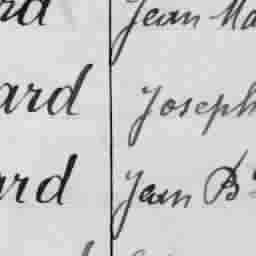 rd Jean Ma
ard Joseph
ard Jean Bte